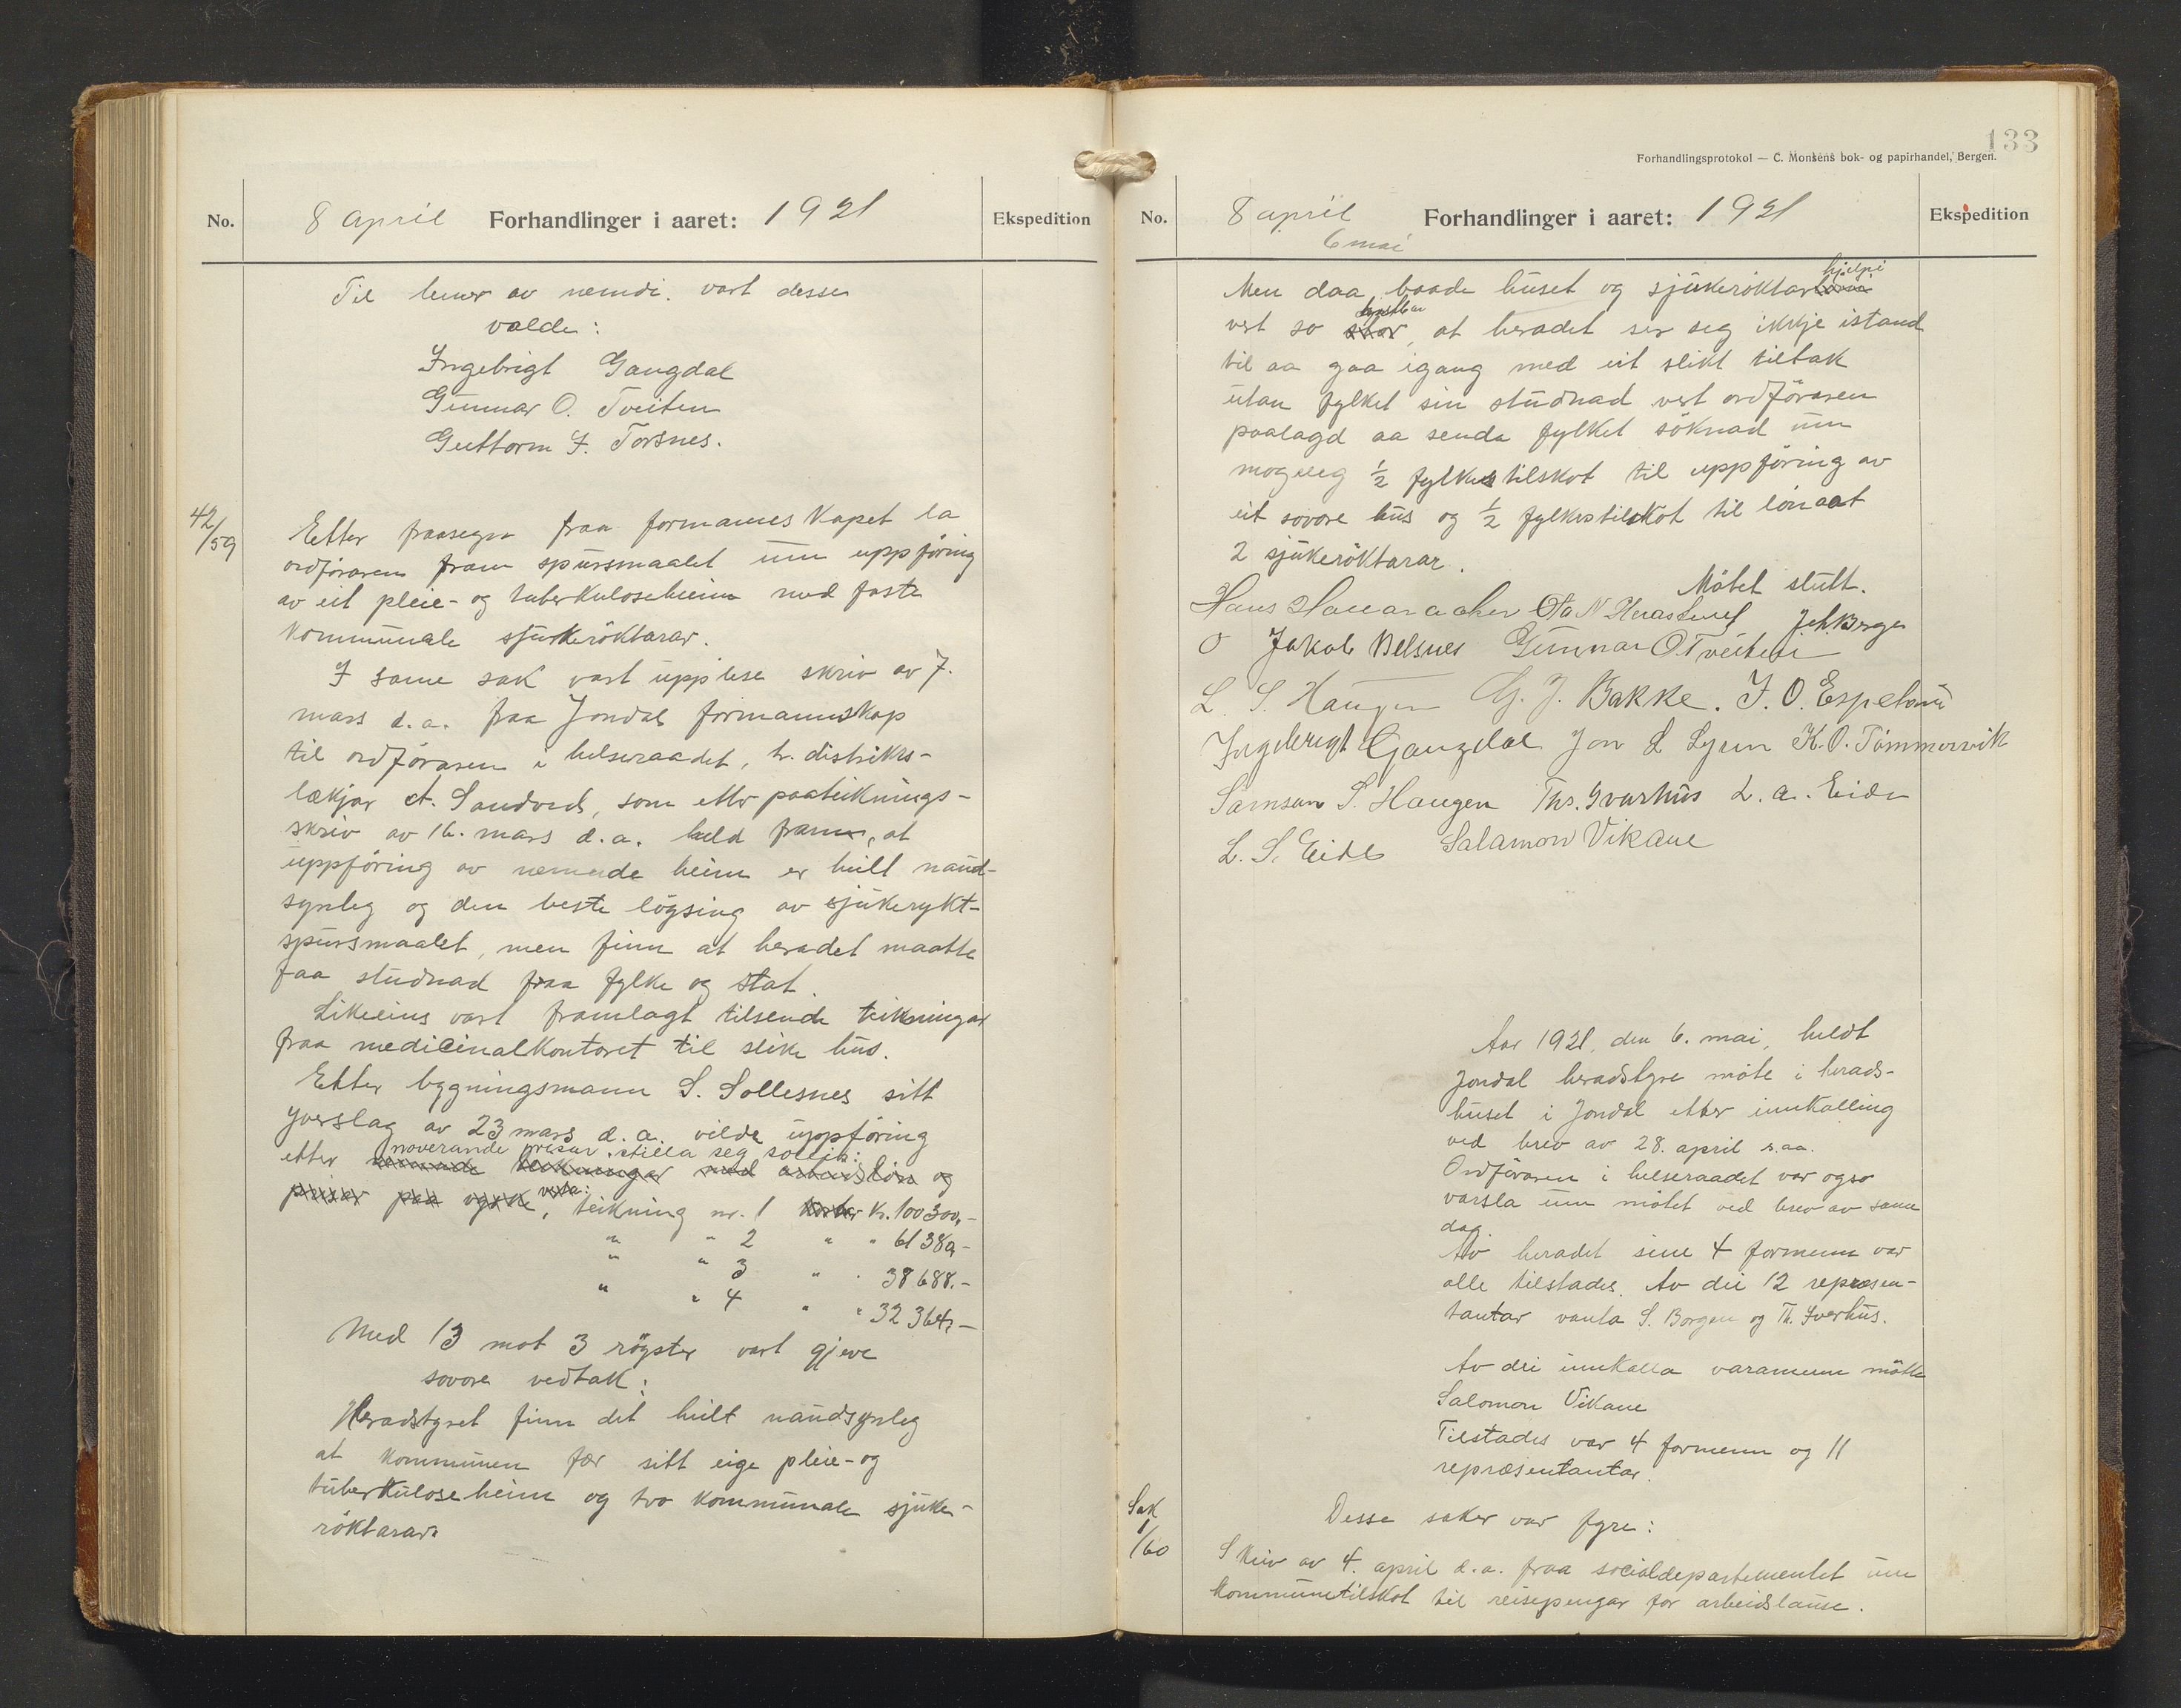 No. 8 april Forhandlinger i aaret: 1921 Ekspedition
Til lemer av nemdi vart desse
valde:
Ingebrigt Gangdal
Gunnar O. Tveiten
Guttorm J. Torsnes.
42/59
Etter fraasegn fraa formannskapet la
ordföraren fram spursmaalet um uppföring
av eit pleie- og tuberkuloseheim med faste
kommunale sjukeröktarar.
I same sak vart upplese skriv av 7.
mars d.a. fraa Jondal formannskap
til ordföraren i helseraadet, hr. distrikts-
lækjar A. Sandved, som etter paateiknings-
skriv av 16. mars d.a. held fram, at
uppföring av nemnde heim er heilt naud-
synleg og den beste löysing av sjukerykt-
spursmaalet, men finn at heradet maatte
faa studnad fraa fylke og stat.
Likeeins vart framlagt tilsende teikningar
fraa medicinalkontoret til slike hus.
Etter bygningsmann S. Sollesnes sitt
yverslag av 23 mars d.a. vilde uppföring
noverande prisar stilla seg soleis:
etter nemnde teikningar med arbeidslön og
prisar paa
, teikning nr. 1 Kr. 100300,-
" " 2 " " 61380,-
" " 3 " " 38688.-
" " 4 " " 32364,-
Med 13 mot 3 röyster vart gjeve
sovore vedtak:
Heradstyret finn det heilt naudsynleg
at kommunen fær sitt eige pleie- og
tuberkuloseheim og tvo kommunale sjuke-
röktarar.
133
Forhandlingsprotokol — C. Monsens bok- og papirhandel, Bergen.
No. 8 april Forhandlinger i aaret: 1921 Ekspedition
6 mai
hjelpi
Men daa baade huset og sjukeröktar
kostbar
vert so stor, at heradet ser seg ikkje istand
til aa gaa igang med eit slikt tiltak
utan fylket sin studnad vert ordföraren
paalagd aa senda fylket söknad um
mogeleg ½ fylkestilskot til uppföring av
eit sovore hus og ½ fylkestilskot til lön aat
2 sjukeröktarar.
Mötet slutt.
Hans Joh. Berge
Jakob Belsnes Gunnar O Tveiten
L. S. Haugen G. J. Bakke. J. O. Espeland
Ingebrigt Gangdal Jon L Lyren K. O. Tömmervik
Samson S. Haugen Ths. Ivarhus L. A. Eide
L. S. Eide Salamon Vikane
Aar 1921, den 6. mai, heldt
Jondal heradstyre möte i herads-
huset i Jondal etter innkalling
ved brev av 28. april s.aa.
Ordföraren i helseraadet var ogso
varsla um mötet ved brev av same
dag.
Av heradet sine 4 formenn var
alle tilstades. Av dei 12 represen-
tantar vanta S. Borgen og Th. Iverhus.
Av dei innkalla varamenn mötte
Salomon Vikane
Tilstades var 4 formenn og 11
representantar.
Desse saker var fyre:
Sak
1/60
Skriv av 4. april d.a. fraa socialdepartementet um
kommunetilskot til reisepengar for arbeidslause.